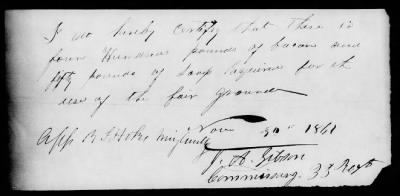 I do hereby certify that there is
four Hundred pounds of bacon and
fifty pounds of Soap required for the
use of the fair ground
Nov 30th 1861
J. A. Gibson
Commissary 33 Regt